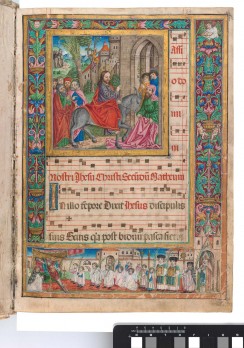 assi
o do
mi
ni
nostri Jhesu Christi Secundum Matheum
In illo tēpore Dixit Jesus discipulis
suis Scitis qa post biduum pasca fiet